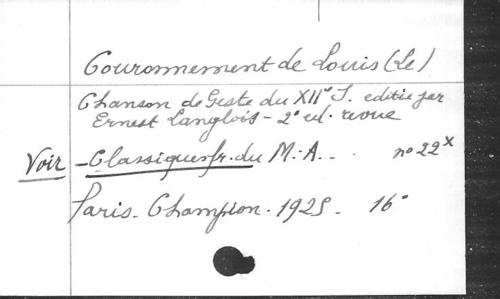 Couronnement de Louis (Le)
Chanson de Geste du XIIe S. editée par
Ernest Langlois - 2e ed. revue
Voir - Classiques fr. du M.-A. - no 22x
Paris - Champion - 1925 - 16°